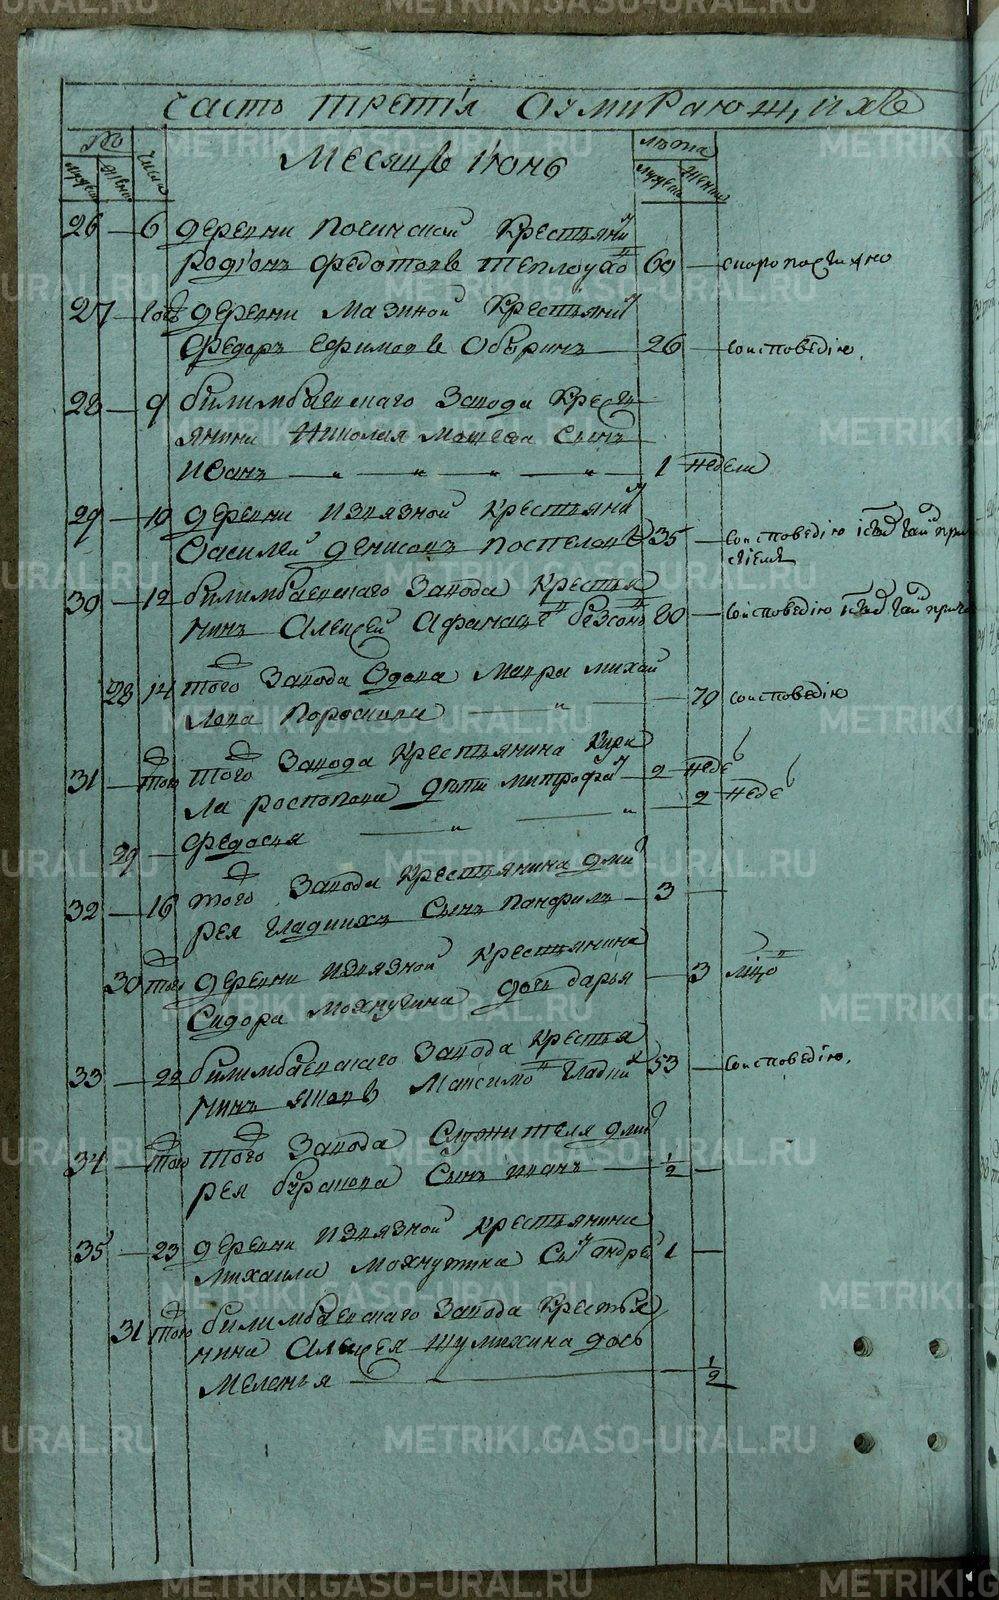 Часть третія Оумирающихъ
№
мужеск
женс
числа
Месяцъ Іюнь
лѣта
мужеск
женска
26 — 6 деревни Посинской Крестьянинъ
Родіонъ Федотовъ Теплоухо 60 — скоропостижно
27 — того деревни Мазиной Крестьянин
Федоръ Ефимовъ Обвринъ 26 — соисповедію.
28 — 9 билимбаевскаго Завода Кресть
янина Николая Мошева сынъ
Иванъ — „ — „ — „ — „ — 1 недели
29 — 10 деревни Извязной Крестьянин
Василей Денисовъ Поспеловъ 35 — соисповедію
30 — 12 билимбаевскаго Завода Крестья
нинъ Алексей Афанасье 80 — соисповедію
28 14 того Завода Вдова Мавра Михай
лова „ — 70 соисповедію
31 — того того Завода Крестьянина Кири
ла Роспопова дѣти Митрофан — 2 неде
Федосья — „ — „ — 2 неде
29 —
32 — 16 того Завода Крестьянина дми
рея Гладкихъ сынъ Панфилъ — 3 —
30 того деревни Извязной Крестьянина
Сидора Мохнуткина дочь Дарья — 3
33 — 22 билимбаевскаго Завода Крестья
нинъ Яковъ Максимо Гладки 53 — соисповедію.
34 — того того Завода Служителя дми
рея сынъ Иванъ — 1/2 —
35 — 23 деревни Извязной Крестьянина
Михаила Мохнуткина Сы андрей 1 —
31 того билимбаевскаго Завода Крестья
нина Алексея Шумихина дочь
Меланья — 1/2
METRIKI.GASO-URAL.RU